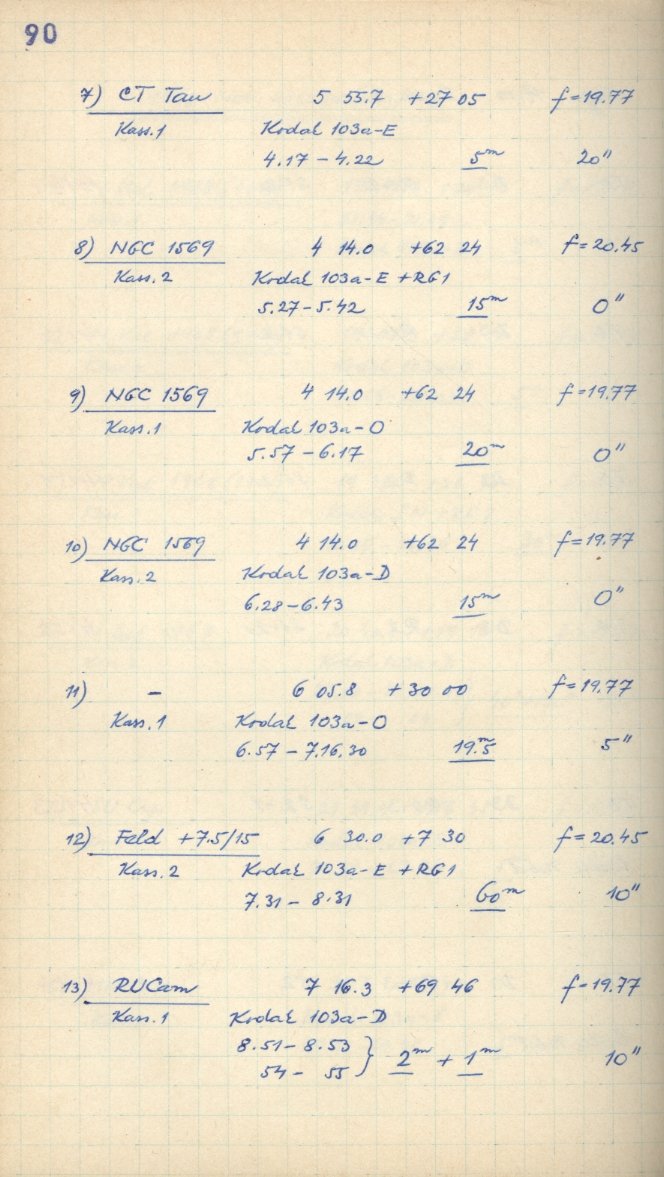 90
7) CT Tau 5 55.7 +27 05 f=19.77
Kass.1 Kodak 103a-E
4.17 – 4.22 5m 20"
8) NGC 1569 4 14.0 +62 24 f=20.45
Kass.2 Kodak 103a-E +RG1
5.27–5.42 15m 0"
9) NGC 1569 4 14.0 +62 24 f=19.77
Kass.1 Kodak 103a-O
5.57 – 6.17 20m 0"
10) NGC 1569 4 14.0 +62 24 f=19.77
Kass.2 Kodak 103a-D
6.28–6.43 15m 0"
11) – 6 05.8 +30 00 f=19.77
Kass.1 Kodak 103a-O
6.57 – 7.16,30 19.m5 5"
12) Feld +7.5/15 6 30.0 +7 30 f=20.45
Kass.2 Kodak 103a-E +RG1
7.31 – 8.31 60m 10"
13) RUCam 7 16.3 +69 46 f=19.77
Kass.1 Kodak 103a-D
8.51–8.53
54 – 55 } 2m + 1m 10"